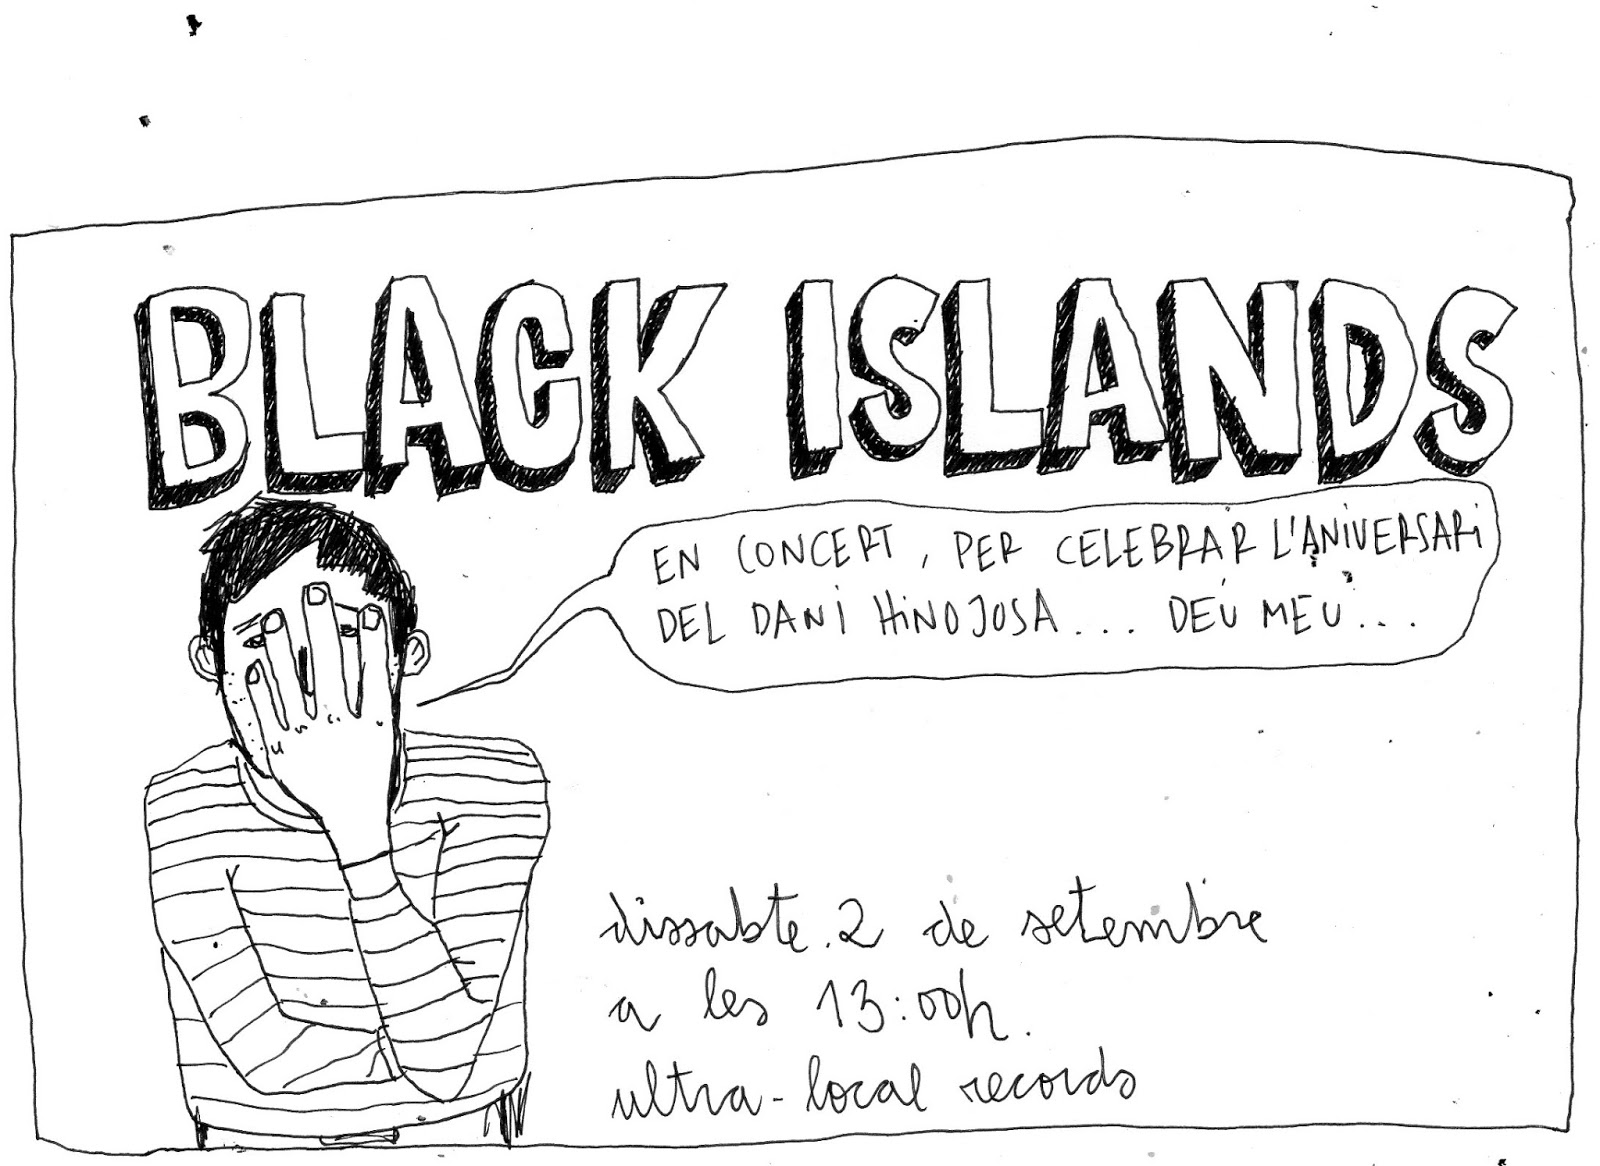 BLACK ISLANDS
EN CONCERT, PER CELEBRAR L'ANIVERSARI
DEL DANI HINOJOSA... DEU MEU...
dissabte. 2 de setembre
a les 13:00h.
ultra-local records